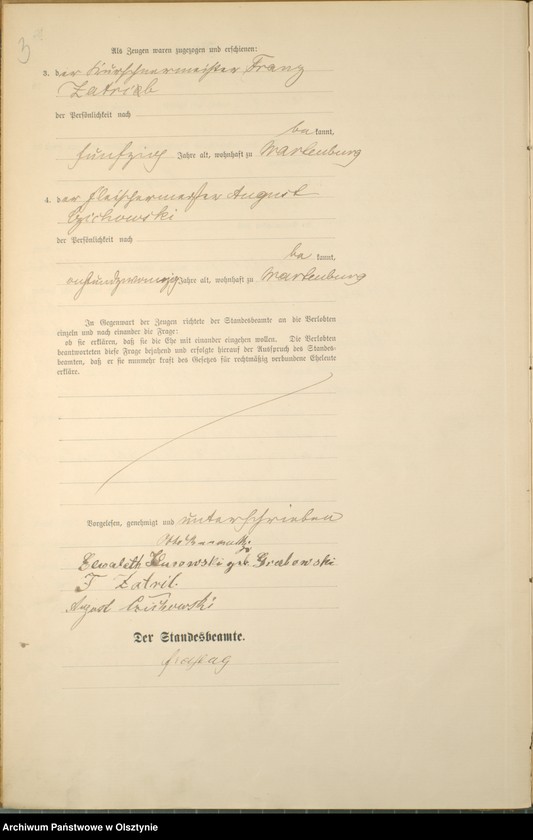 3
Als Zeugen waren zugezogen und erschienen:
3. der Kürschnermeister Franz
Zatrib
der Persönlichkeit nach
be kannt,
fünfzig Jahre alt, wohnhaft zu Wartenburg
4. der Fleischermeister August
Czichowski
der Persönlichkeit nach
be kannt,
achtundzwanzig Jahre alt, wohnhaft zu Wartenburg
In Gegenwart der Zeugen richtete der Standesbeamte an die Verlobten
einzeln und nach einander die Frage:
ob sie erklären, daß sie die Ehe mit einander eingehen wollen. Die Verlobten
beantworteten diese Frage bejahend und erfolgte hierauf der Ausspruch des Standes-
beamten, daß er sie nunmehr kraft des Gesetzes für rechtmäßig verbundene Eheleute
erkläre.
Vorgelesen, genehmigt und unterschrieben
geb. Grabowski
F Zatrib.
August Czichowski
Der Standesbeamte.
Freytag
Archiwum Państwowe w Olsztynie